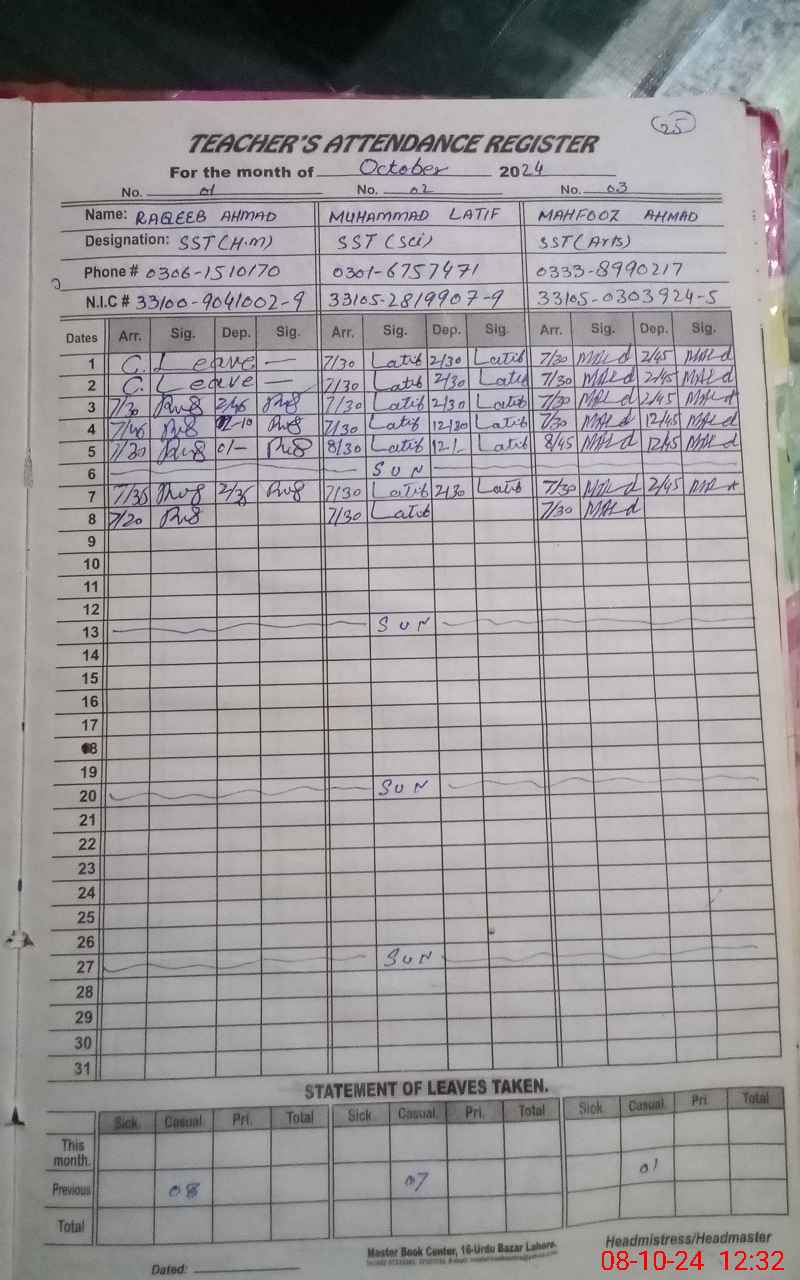 25
TEACHER'S ATTENDANCE REGISTER
For the month of October 2024
No. 01 No. 02 No. 03
Name: RAQEEB AHMAD MUHAMMAD LATIF MAHFOOZ AHMAD
Designation: SST (H.M) SST (Sci) SST (Arts)
Phone # 0306-1510170 0301-6757471 0333-8990217
N.I.C # 33100-9041002-9 33105-2819907-9 33105-0303924-5
Dates Arr. Sig. Dep. Sig. Arr. Sig. Dep. Sig. Arr. Sig. Dep. Sig.
1 C. Leave — 7/30 Latif 2/30 Latif 7/30 2/45
2 C. Leave — 7/30 Latif 2/30 Latif 7/30 2/45
3 7/30 2/45 7/30 Latif 2/30 Latif 7/30 2/45
4 7/45 7/30 Latif 12/30 Latif 7/30 12/45
5 7/30 01- 8/30 Latif 12/- Latif 8/45 12/45
6 SUN
7 7/35 2/35 7/30 Latif 2/30 Latif 7/30 2/45
8 7/20 7/30 Latif 7/30
9
10
11
12
13 SUN
14
15
16
17
18
19
20 SUN
21
22
23
24
25
26
27 SUN
28
29
30
31
STATEMENT OF LEAVES TAKEN.
Sick. Casual. Pri. Total Sick. Casual. Pri. Total Sick. Casual. Pri. Total
This month.
Previous 08 07 01
Total
Dated:
Master Book Center, 16-Urdu Bazar Lahore.
Headmistress/Headmaster
08-10-24 12:32